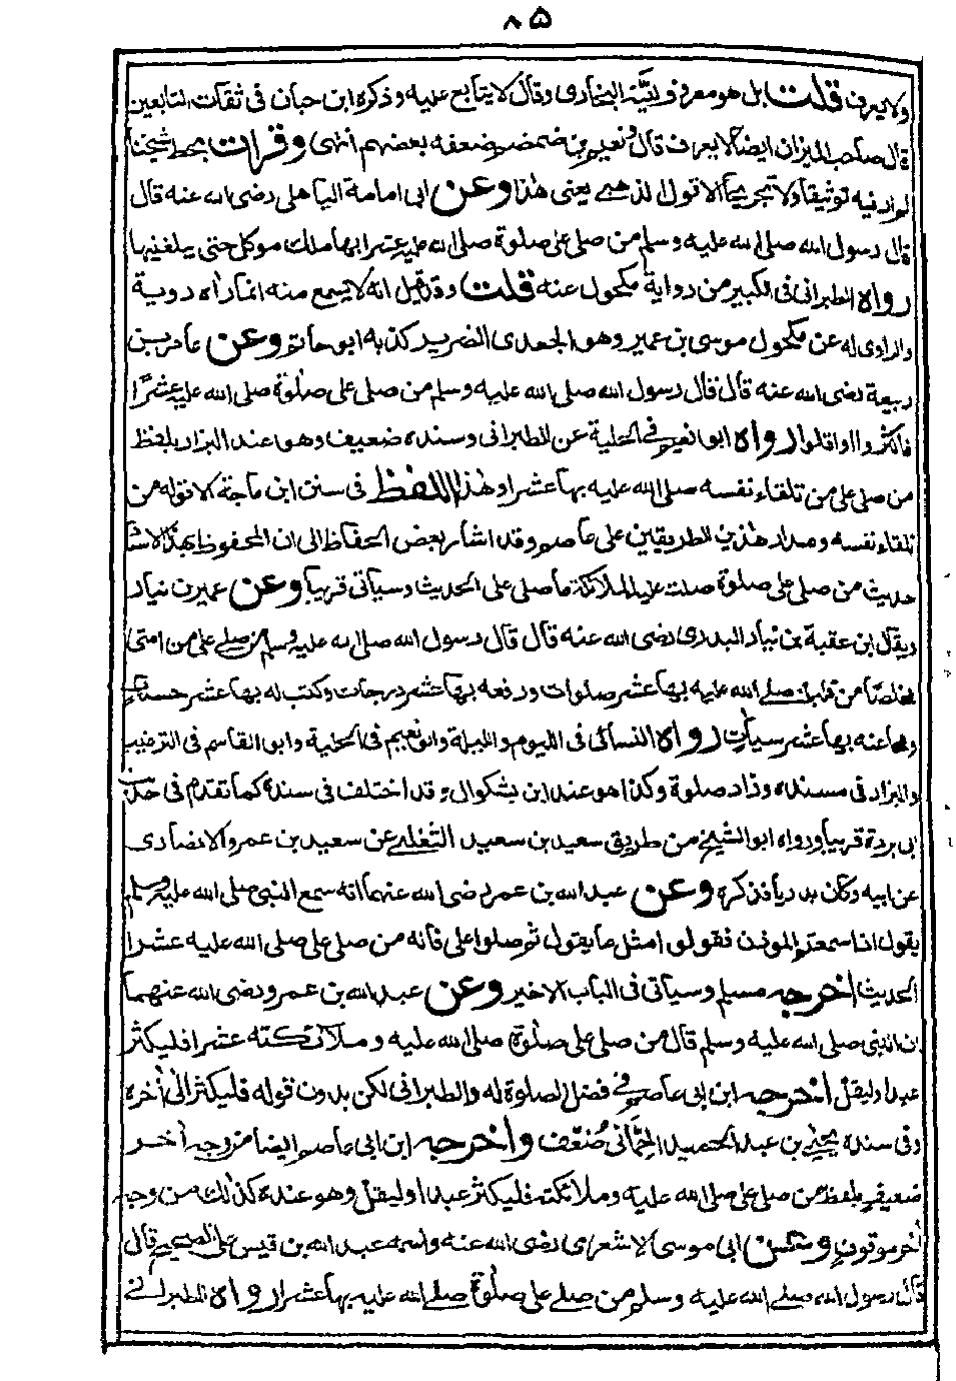 ٨٥
ولا يعرف قلت بل هو معروف وليّنه البخاري وقال لا يتابع عليه وذكره ابن حبان في ثقات التابعين
قال صاحب الميزان ايضا لا يعرف قال ونعيم بن ضمضم ضعفه بعضهم انتهى وقرات بخط شيخنا
لم ار فيه توثيقا ولا تجريحا الا قول الذهبي يعني هذا وعن ابي امامة الباهلي رضى الله عنه قال
قال رسول الله صلى الله عليه وسلم من صلى على صلوة صلى الله عليه عشرا بها ملك موكل حتى يبلغنيها
رواه الطبراني في الكبير من رواية مكحول عنه قلت وقد قيل انه لا يسمع منه انما راه روية
والراوى له عن مكحول موسى بن عمير وهو الجعدى الضرير كذبه ابو حاتم وعن عامر بن
ربيعة رضى الله عنه قال قال رسول الله صلى الله عليه وسلم من صلى على صلوة صلى الله عليه عشرا
فاكثروا او اقلوا رواه ابو نعيم في الحلية عن الطبراني وسنده ضعيف وهو عند البزار بلفظ
من صلى على من تلقاء نفسه صلى الله عليه بها عشرا وهذا اللفظ في سنن ابن ماجة الا قوله من
تلقاء نفسه ومدار هذين الطريقين على عاصم وقد اشار بعض الحفاظ الى ان المحفوظ بهذا الاسنا
حديث من صلى على صلوة صلت عليه الملائكة ما صلى على الحديث وسياتى قريبا وعن عمير بن نيار
ويقال ابن عقبة بن نيار البدرى رضى الله عنه قال قال رسول الله صلى الله عليه وسلم من صلى على من امتى
مخلصا من قلبه صلى الله عليه بها عشر صلوات ورفعه بها عشر درجات وكتب له بها عشر حسنات
ومحا عنه بها عشر سيآت رواه النسائى في اليوم والليلة وابو نعيم في الحلية وابو القاسم في الترغيب
والبزار في مسنده وزاد صلوة وكذا هو عند ابن بشكوال وقد اختلف في سنده كما تقدم في حديث
ابى بردة قريبا ورواه ابو الشيخ من طريق سعيد بن سعيد الثعلبي عن سعيد بن عمرو الانصارى
عن ابيه وكان بدريا فذكره وعن عبد الله بن عمر رضى الله عنهما انه سمع النبي صلى الله عليه وسلم
يقول اذا سمعتم المؤذن فقولوا مثل ما يقول ثم صلوا على فانه من صلى على صلى الله عليه عشرا
الحديث اخرجه مسلم وسياتى في الباب الاخير وعن عبد الله بن عمرو رضى الله عنهما
ان النبي صلى الله عليه وسلم قال من صلى على صلوة صلى الله عليه وملائكته عشرا فليكثر
عبد او ليقل اخرجه ابن ابى عاصم في فضل الصلوة له والطبراني لكن بدون قوله فليكثر الى آخره
وفى سنده يحيى بن عبد الحميد الحماني ضعف واخرجه ابن ابى عاصم ايضا من وجه اخر
ضعيف بلفظ من صلى على صلى الله عليه وملائكته فليكثر عبد او ليقل وهو عنده كذلك من وجه
آخر موقوف وعن ابى موسى الاشعرى رضى الله عنه واسمه عبد الله بن قيس على الصحيح قال
قال رسول الله صلى الله عليه وسلم من صلى على صلوة صلى الله عليه بها عشرا رواه الطبراني